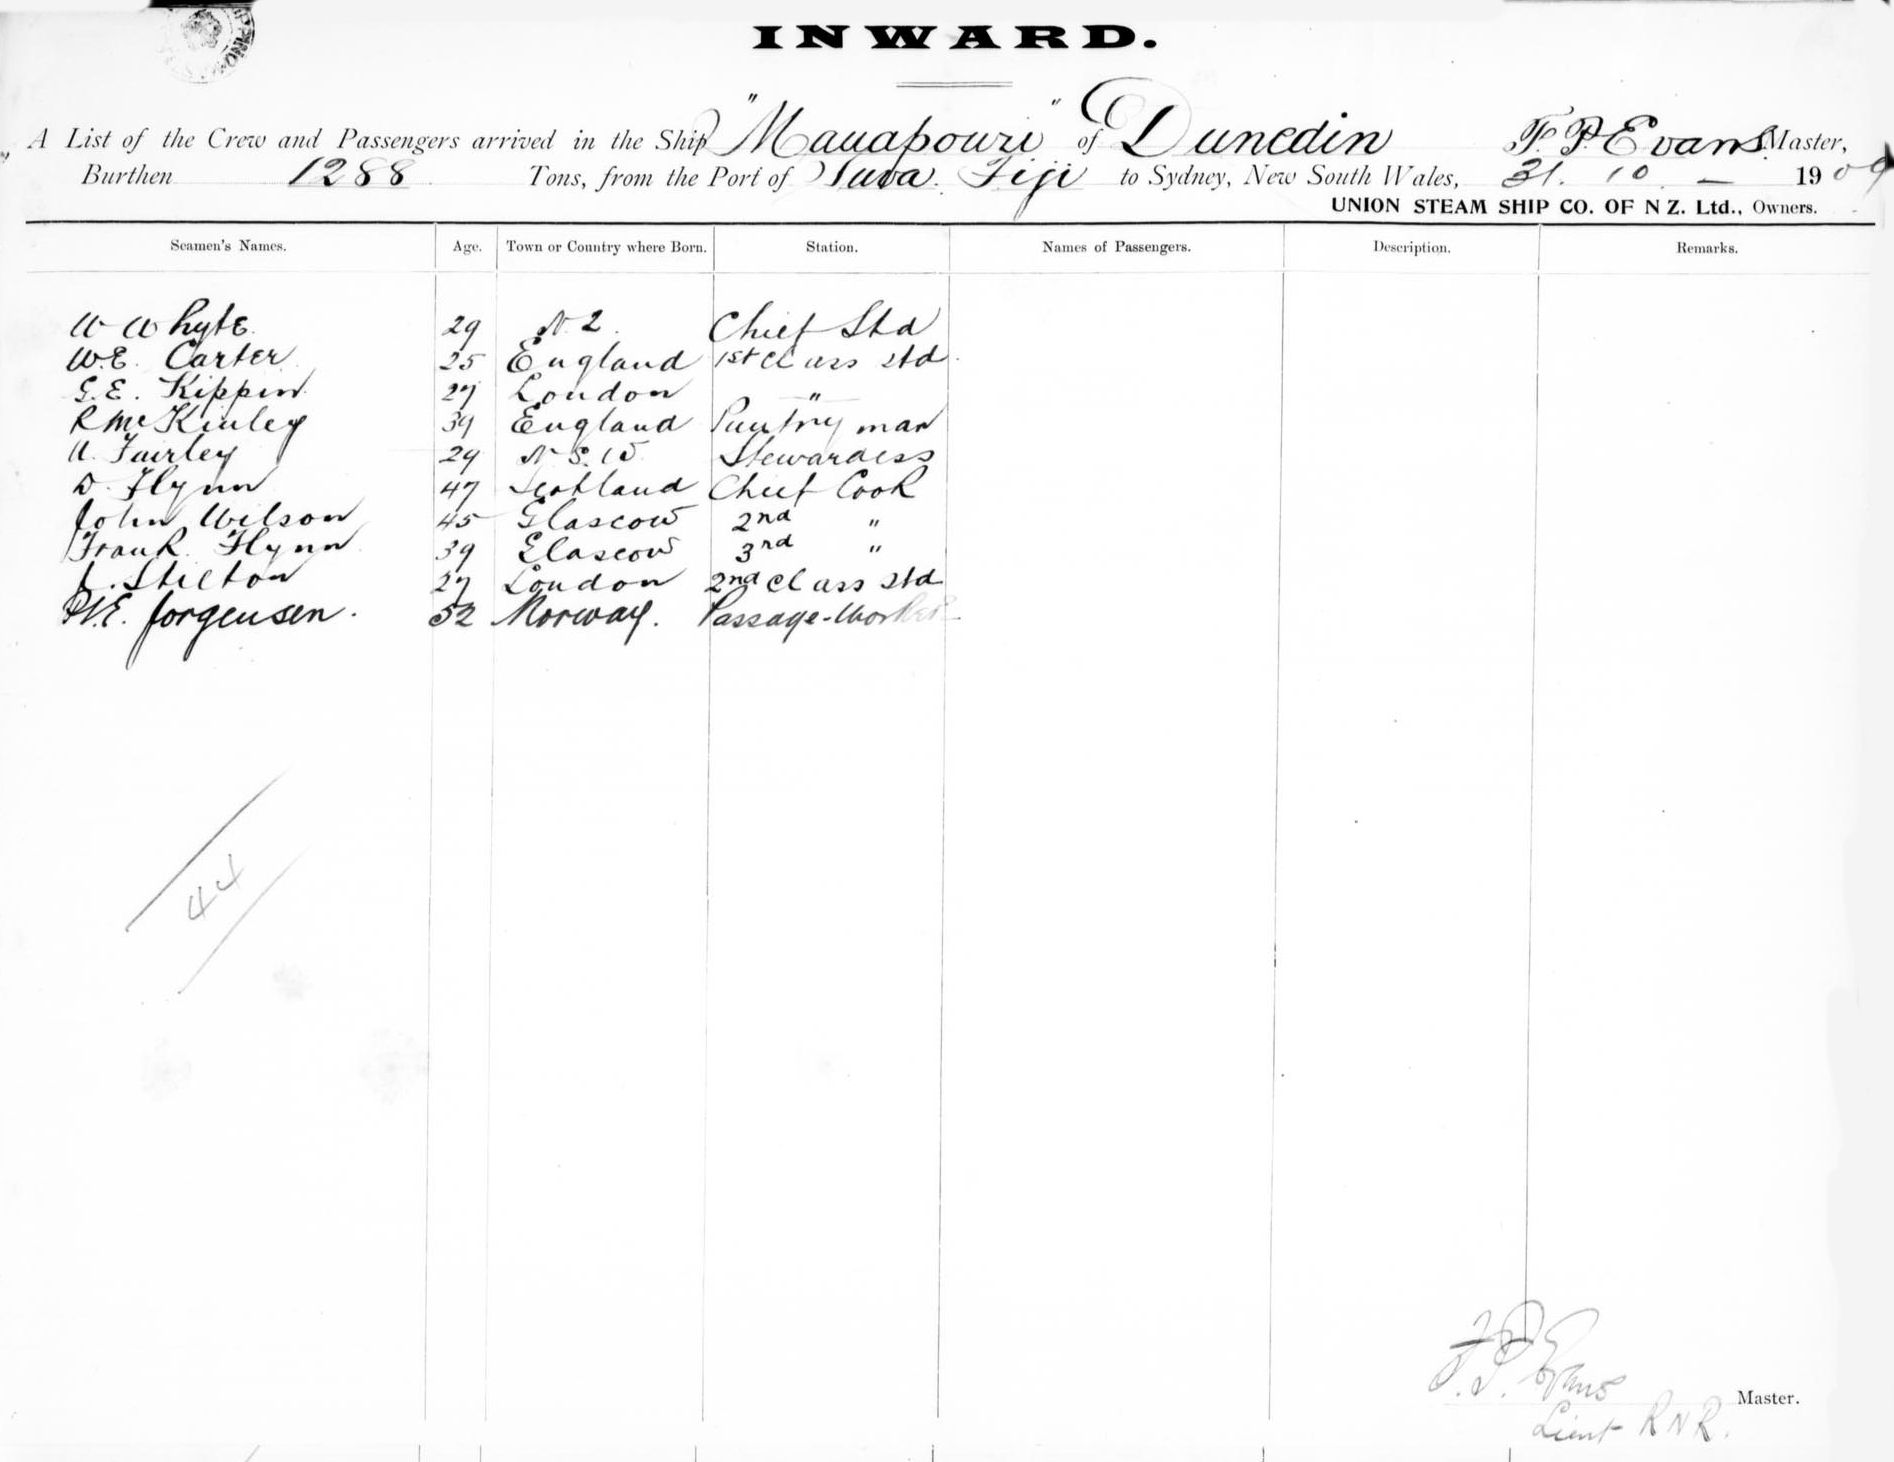 INWARD.
A List of the Crew and Passengers arrived in the Ship "Manapouri" of Dunedin F P Evans Master,
Burthen 1288 Tons, from the Port of Suva. Fiji to Sydney, New South Wales, 31. 10 – 1909
UNION STEAM SHIP CO. OF N Z. Ltd., Owners.
Seamen's Names. Age. Town or Country where Born. Station. Names of Passengers. Description. Remarks.
W Whyte. 29 N. Z. Chief Std
W.E. Carter 25 England 1st Class Std.
G.E. Kippin 27 London "
R McKinley 39 England Pantry man
A. Fairley 29 N.S.W. Stewardess
D. Flynn 47 Scotland Chief Cook
John Wilson 45 Glascow 2nd "
Frank Flynn 39 Glascow 3rd "
Stilton 27 London 2nd Class Std
E. Jorgensen. 52 Norway. Passage-Worker
44
F. P. Evans Master.
Lieut R N R.